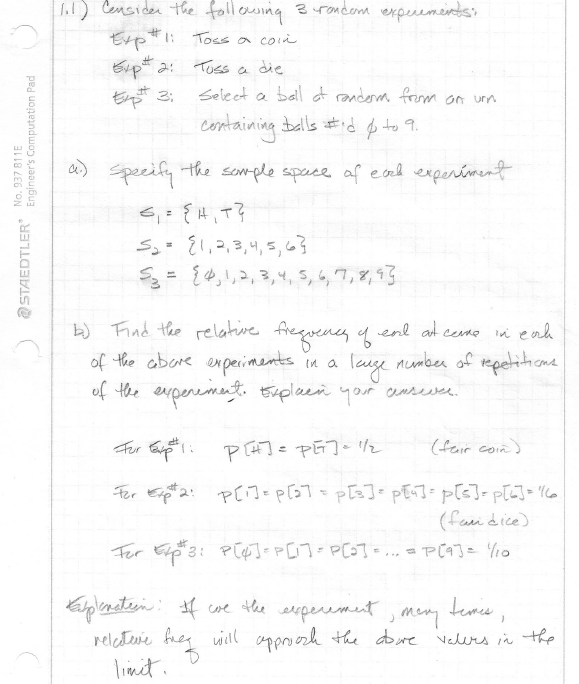 1.1) Consider the following 3 random experiments:
Exp #1: Toss a coin
Exp #2: Toss a die
Exp #3: Select a ball at random from an urn
containing balls #'d ϕ to 9.
a.) Specify the sample space of each experiment
S₁ = {H, T}
S₂ = {1,2,3,4,5,6}
S₃ = {ϕ,1,2,3,4,5,6,7,8,9}
b) Find the relative frequency of each outcome in each
of the above experiments in a large number of repetitions
of the experiment. Explain your answer.
For Exp #1: P[H] = P[T] = 1/2 (fair coin)
For Exp #2: P[1] = P[2] = P[3] = P[4] = P[5] = P[6] = 1/6
(fair dice)
For Exp #3: P[ϕ] = P[1] = P[2] = ... = P[9] = 1/10
Explanation: If we the experiment, many times,
relative freq will approach the above values in the
limit.
STAEDTLER® No. 937 811E
Engineer's Computation Pad